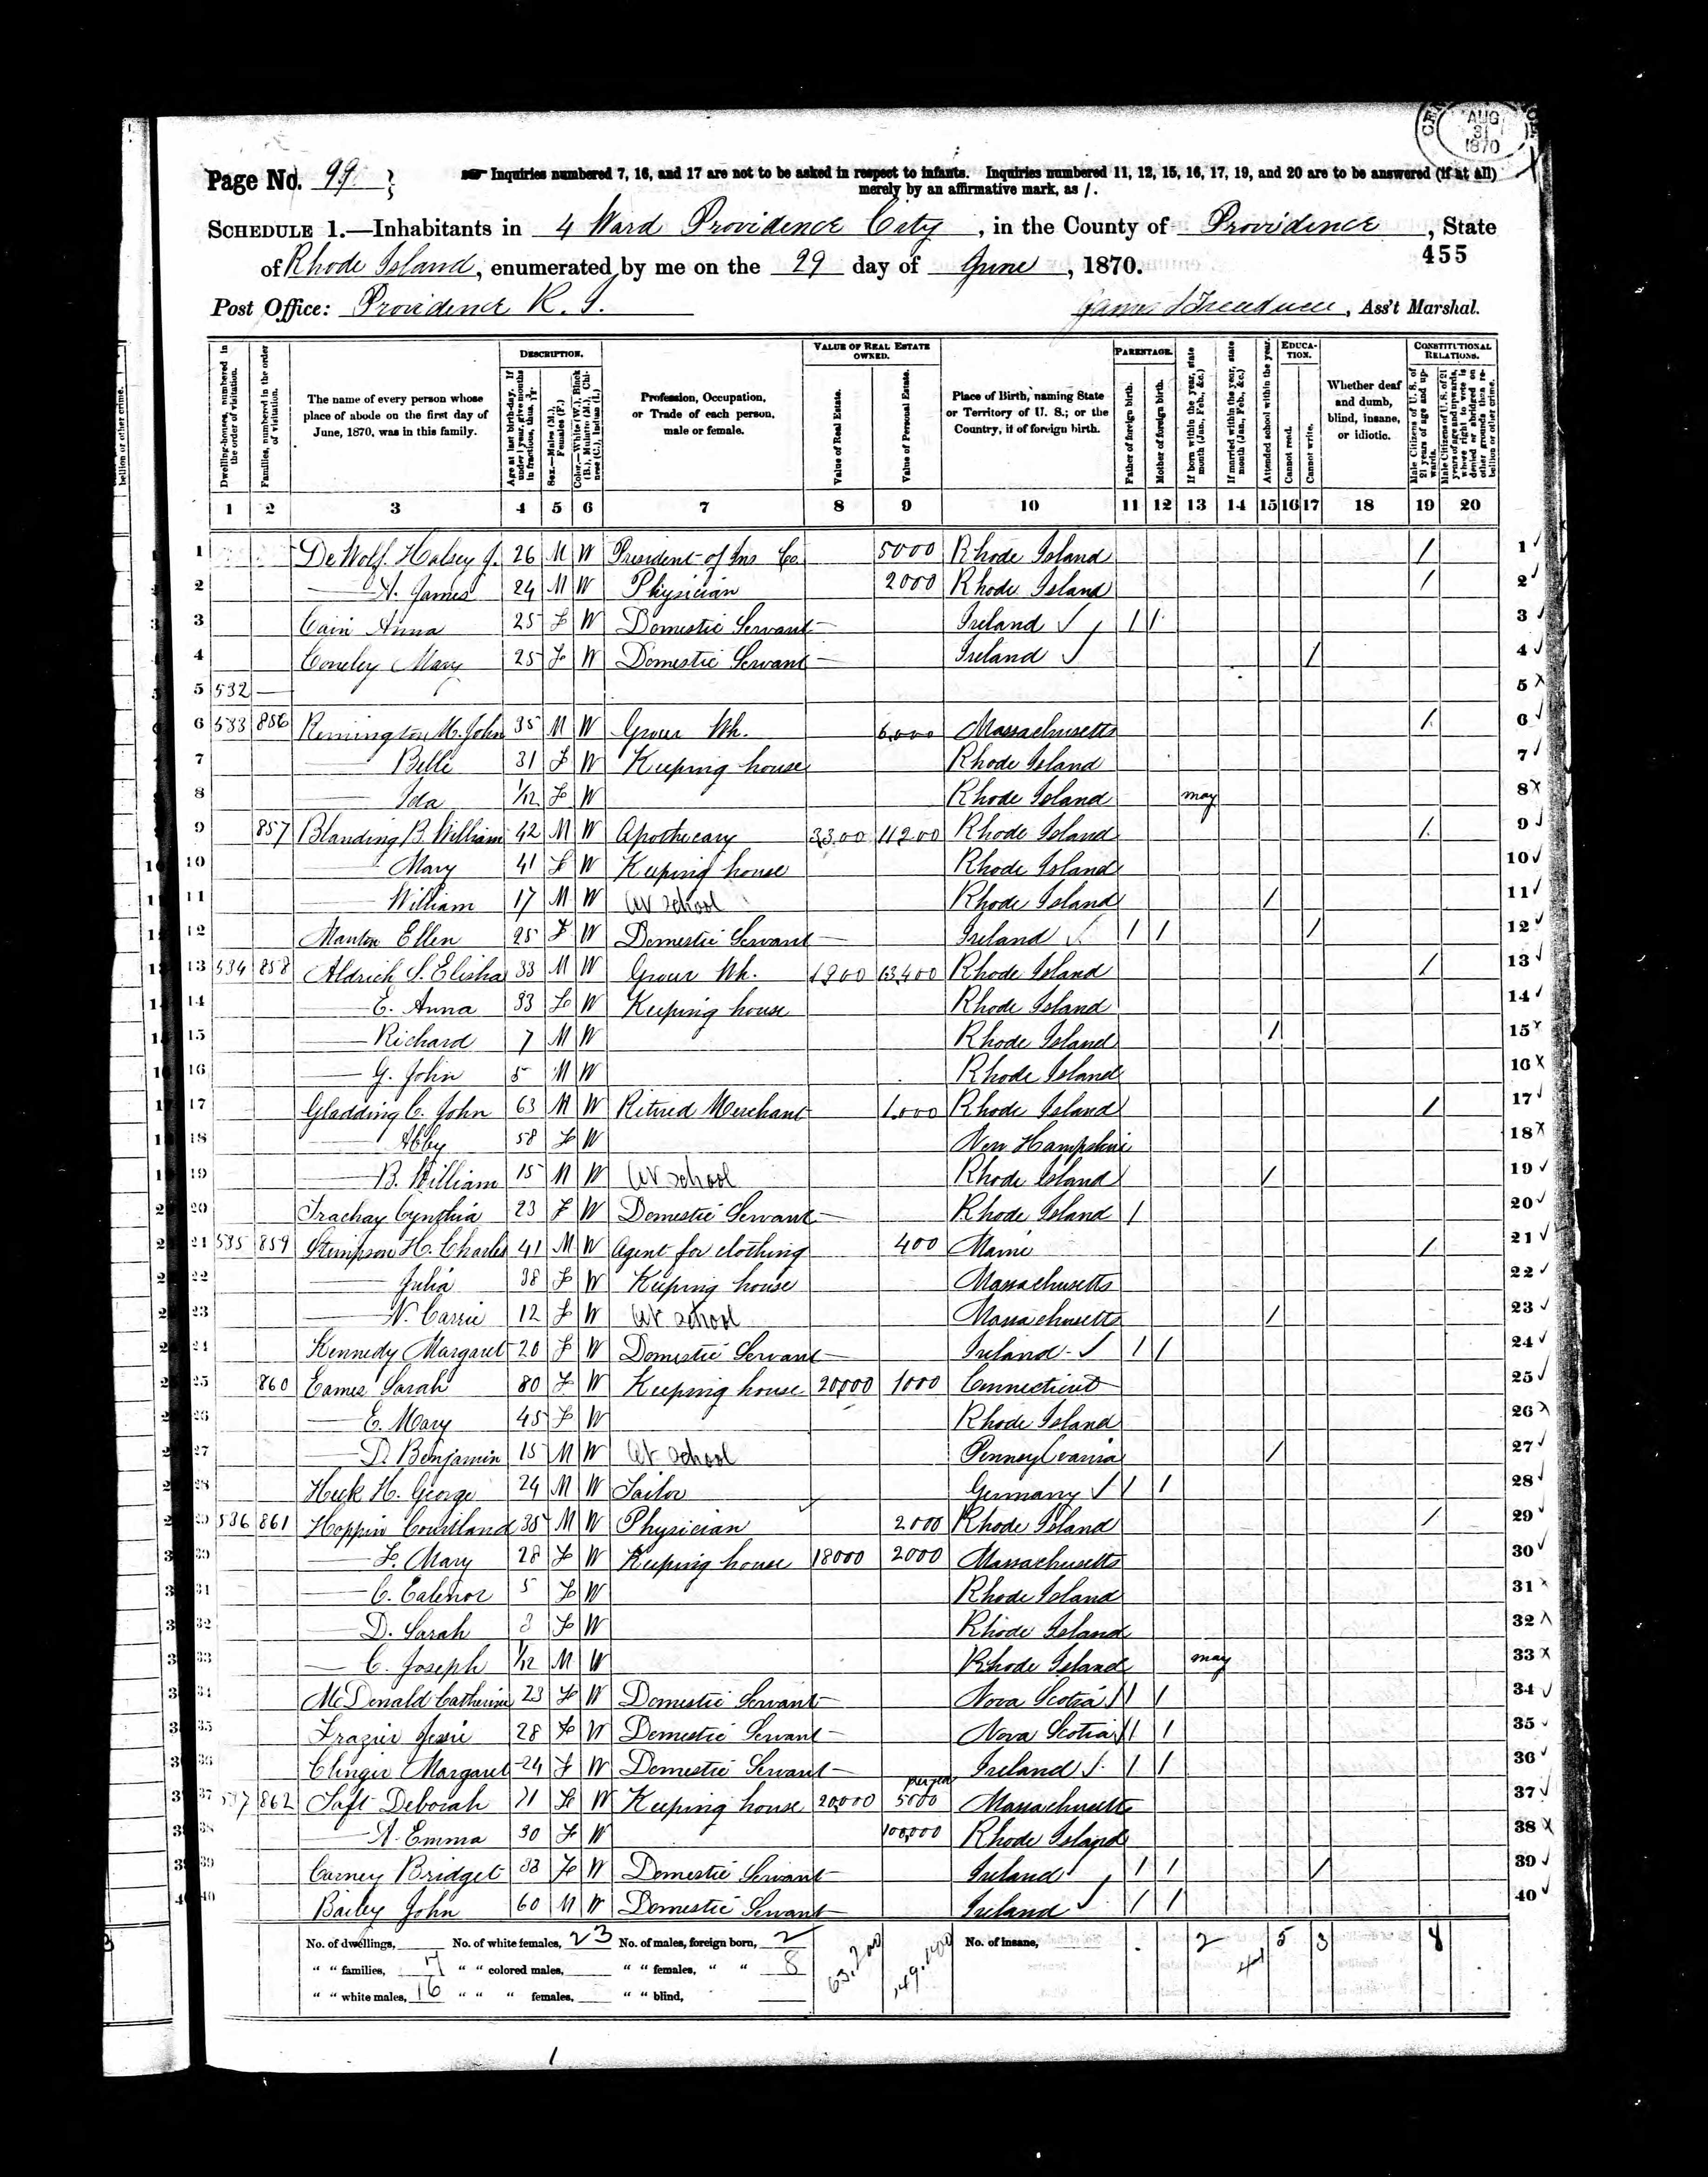 AUG
31
1870
Page No. 99
Inquiries numbered 7, 16, and 17 are not to be asked in respect to infants. Inquiries numbered 11, 12, 15, 16, 17, 19, and 20 are to be answered (if at all)
merely by an affirmative mark, as /.
SCHEDULE 1.—Inhabitants in 4 Ward Providence City, in the County of Providence, State
455
of Rhode Island, enumerated by me on the 29 day of June, 1870.
Post Office: Providence R. I. James, Ass't Marshal.
DESCRIPTION. VALUE OF REAL ESTATE OWNED. PARENTAGE. EDUCATION. CONSTITUTIONAL RELATIONS.
Dwelling-houses, numbered in the order of visitation.
Families, numbered in the order of visitation.
The name of every person whose place of abode on the first day of June, 1870, was in this family.
Age at last birth-day. If under 1 year, give months in fractions, thus, 3/12.
Sex.—Males (M.), Females (F.)
Color.—White (W.), Black (B.), Mulatto (M.), Chinese (C.), Indian (I.)
Profession, Occupation, or Trade of each person, male or female.
Value of Real Estate.
Value of Personal Estate.
Place of Birth, naming State or Territory of U. S.; or the Country, if of foreign birth.
Father of foreign birth.
Mother of foreign birth.
If born within the year, state month (Jan., Feb., &c.)
If married within the year, state month (Jan., Feb., &c.)
Attended school within the year.
Cannot read.
Cannot write.
Whether deaf and dumb, blind, insane, or idiotic.
Male Citizens of U. S. of 21 years of age and upwards.
Male Citizens of U. S. of 21 years of age and upwards, whose right to vote is denied or abridged on other grounds than rebellion or other crime.
1 2 3 4 5 6 7 8 9 10 11 12 13 14 15 16 17 18 19 20
1 De Wolf Halsey J. 26 M W President of Ins Co 5000 Rhode Island / 1
2 — A. James 24 M W Physician 2000 Rhode Island / 2
3 Cain Anna 25 F W Domestic Servant Ireland / / 3
4 Coneley Mary 25 F W Domestic Servant Ireland / 4
5 532 — 5
6 533 856 Remington M. John 35 M W Grocer Wh. 6,000 Massachusetts / 6
7 — Belle 31 F W Keeping house Rhode Island 7
8 — Ida 1/12 F W Rhode Island may 8
9 857 Blanding B. William 42 M W Apothecary 3300 11200 Rhode Island / 9
10 — Mary 41 F W Keeping house Rhode Island 10
11 — William 17 M W At school Rhode Island / 11
12 Manton Ellen 25 F W Domestic Servant Ireland / / / 12
13 534 858 Aldrich S. Elisha 33 M W Grocer Wh. 1,900 13,400 Rhode Island / 13
14 — E. Anna 33 F W Keeping house Rhode Island 14
15 — Richard 7 M W Rhode Island / 15
16 — G. John 5 M W Rhode Island 16
17 Gladding C. John 63 M W Retired Merchant 1,000 Rhode Island / 17
18 — Abby 58 F W New Hampshire 18
19 — B. William 15 M W At school Rhode Island / 19
20 Trachay Cynthia 23 F W Domestic Servant Rhode Island / 20
21 535 859 Stimpson H. Charles 41 M W Agent for clothing 400 Maine / 21
22 — Julia 38 F W Keeping house Massachusetts 22
23 — N. Carrie 12 F W At school Massachusetts / 23
24 Kennedy Margaret 20 F W Domestic Servant Ireland / / 24
25 860 Eames Sarah 80 F W Keeping house 20,000 1000 Connecticut 25
26 — E. Mary 45 F W Rhode Island 26
27 — D. Benjamin 15 M W At school Pennsylvania / 27
28 Heck H. George 24 M W Tailor Germany / / 28
29 536 861 Hoppin Courtland 35 M W Physician 2000 Rhode Island / 29
30 — F. Mary 28 F W Keeping house 18000 2000 Massachusetts 30
31 — C. Ealenor 5 F W Rhode Island 31
32 — D. Sarah 3 F W Rhode Island 32
33 — C. Joseph 1/12 M W Rhode Island may 33
34 McDonald Catherine 23 F W Domestic Servant Nova Scotia / / 34
35 Frazier Jessie 28 F W Domestic Servant Nova Scotia / / 35
36 Clinger Margaret 24 F W Domestic Servant Ireland / / 36
37 537 862 Taft Deborah 71 F W Keeping house 20,000 5000 Massachusetts 37
38 — A. Emma 30 F W 100,000 Rhode Island 38
39 Carney Bridget 33 F W Domestic Servant Ireland / / / 39
40 Bailey John 60 M W Domestic Servant Ireland / / 40
No. of dwellings, No. of white females, 23 No. of males, foreign born, 2 63,200 149,100 No. of insane, 2 5 3 8
" " families, 7 " " colored males, " " females, " " 8
" " white males, 16 " " " females, " " blind,